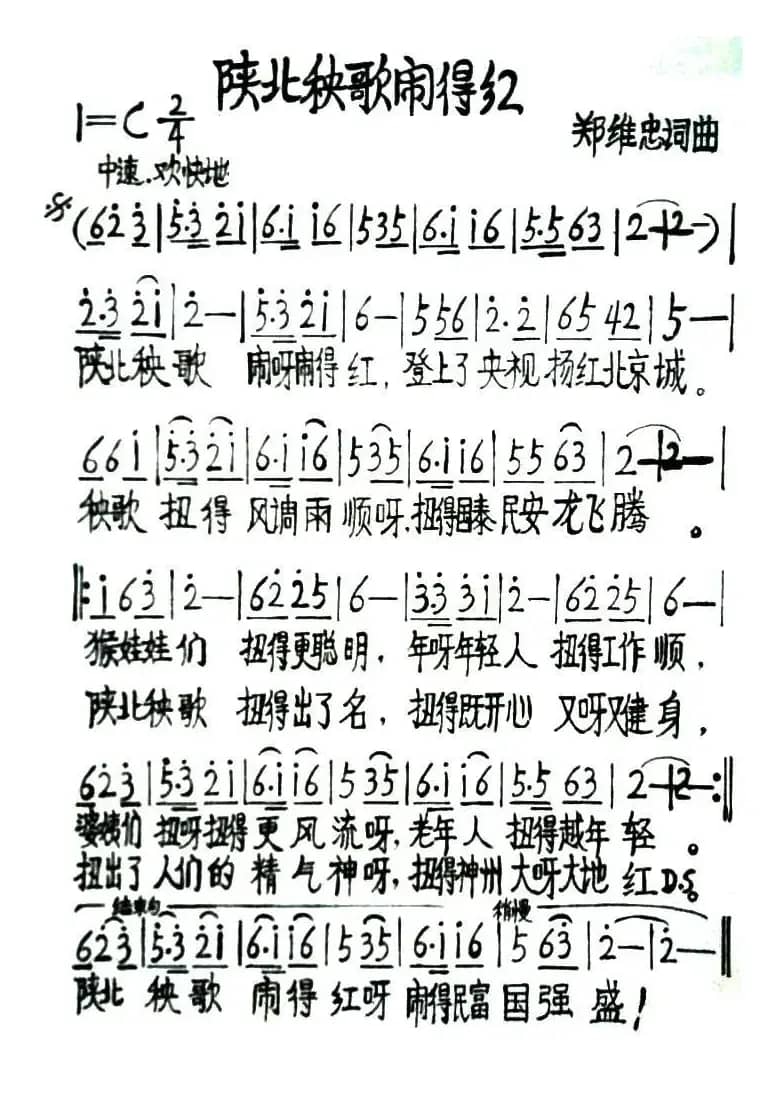 陕北秧歌闹得红
1=C 2/4
郑维忠词曲
中速.欢快地
(6 2̇ 3̇ | 5̇·3̇ 2̇ i | 6·i i 6 | 5 3 5 | 6·i i 6 | 5·5 6 3 | 2 — | 2 — ) |
2̇·3̇ 2̇ i | 2̇ — | 5̇·3̇ 2̇ i | 6 — | 5 5 6 | 2̇·2̇ | 6 5 4 2 | 5 — |
陕北秧歌 闹呀闹得红,登上了央视扬红北京城。
6 6 i | 5̇·3̇ 2̇ i | 6·i i 6 | 5 3 5 | 6·i i 6 | 5 5 6 3 | 2 — | 2 — |
秧歌扭得风调雨顺呀,扭得国泰民安龙飞腾。
‖: i 6 3̇ | 2̇ — | 6 2̇ 2̇ 5 | 6 — | 3̇·3̇ 3̇ i | 2̇ — | 6 2̇ 2̇ 5 | 6 — |
猴娃娃们 扭得更聪明,年呀年轻人 扭得工作顺,
陕北秧歌 扭得出了名,扭得既开心 又呀又健身,
6 2̇ 3̇ | 5̇·3̇ 2̇ i | 6·i i 6 | 5 3 5 | 6·i i 6 | 5·5 6 3 | 2 — | 2 — :‖
婆姨们 扭呀扭得更风流呀,老年人 扭得越年轻。
扭出了人们的精气神呀,扭得神州大呀大地红D.S.
结束句 稍慢
6 2̇ 3̇ | 5̇·3̇ 2̇ i | 6·i i 6 | 5 3 5 | 6·i i 6 | 5 6 3̇ | 2̇ — | 2̇ — ‖
陕北秧歌闹得红呀闹得民富国强盛!